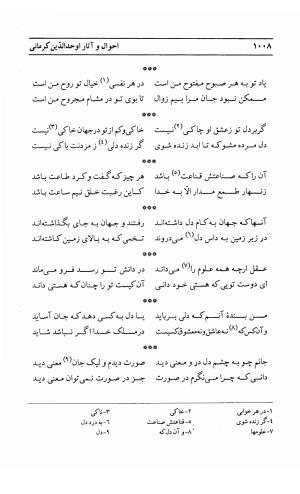 ۱۰۰۸ احوال و آثار اوحدالدّین کرمانی
***
یاد تو به هر صبوح مفتوح من است در هر نفسی(۱) خیال تو روح من است
ممکن نبود جان مرا بیم زوال تا بوی تو در مشام مجروح من است
***
گر بر دل تو ز عشق او چاکی(۲) نیست خاکی و کم از تو در جهان خاکی(۳) نیست
دل مرده مشو که تا ابد زنده شوی گر زنده دلی(۴) ز مردنت باکی نیست
***
آن را که صناعتش قناعت(۵) باشد هر چیز که گفت و کرد طاعت باشد
زنهار طمع مدار الّا به خدا کاین رغبت خلق نیم ساعت باشد
***
آنها که جهان به کام دل داشته‌اند رفتند و جهان به جای بگذاشته‌اند
در زیر زمین به داس دل(۶) می‌دروند تخمی که به بالای زمین کاشته‌اند
***
عقل ارچه همه علوم را(۷) می‌داند در دانش تو رسد فرو می‌ماند
ای دوست تویی که هستی خود دانی آن کیست تو را چنان که هستی داند
***
من بندهٔ آنم که دلی برباید یا دل به کسی دهد که جان آساید
و آن کس که(۸) نه عاشق و نه معشوق کسیست در ملک خدا اگر نباشد شاید
***
جانم چو به چشم دل در و معنی دید صورت دیدم و لیک جان(۹) معنی دید
دانی که چرا می‌نگرم در صورت جز در صورت نمی‌توان معنی دید
۱-در هر خوابی ۲-خاکی ۳-تاکی
۴-گر زنده شوی ۵-قناعتش صناعت ۶-به درد دل
۷-علومها ۸-و آن دل که ۹-دل